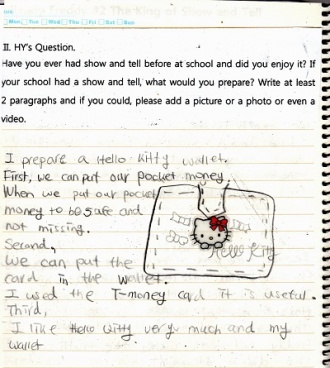 Mon Tue Wed Thu Fri Sat Sun
II. HY's Question.
Have you ever had show and tell before at school and did you enjoy it? If
your school had a show and tell, what would you prepare? Write at least
2 paragraphs and if you could, please add a picture or a photo or even a
video.
I prepare a Hello Kitty wallet.
First, we can put our pocket money.
When we put our pocket
money to be safe and
not missing.
Second,
We can put the
card in the wallet.
I used the T-money card it is useful.
Third,
I like Hello kitty very much and my
wallet
Hello Kitty